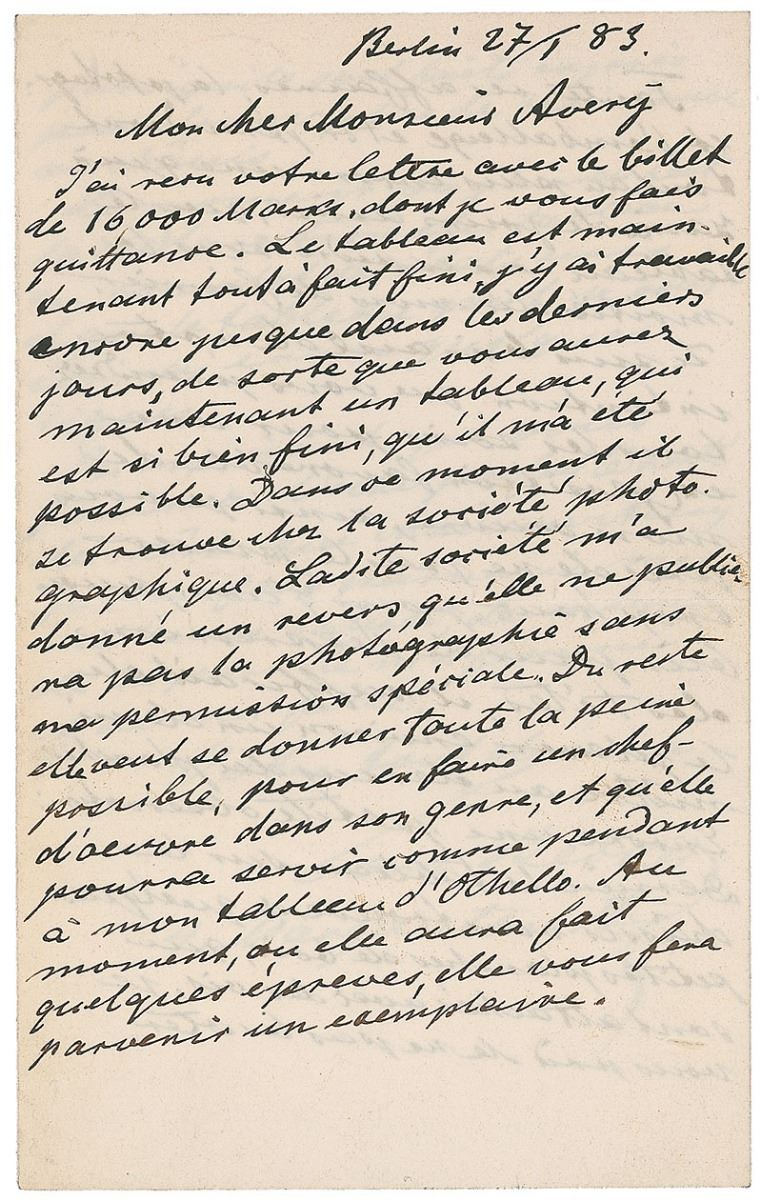 Berlin 27/I 83.
Mon cher Monsieur Avery
J'ai reçu votre lettre avec le billet
de 16,000 Marks, dont je vous fais
quittance. Le tableau est main-
tenant tout à fait fini, j'y ai travaillé
encore jusque dans les derniers
jours, de sorte que vous aurez
maintenant un tableau, qui
est si bien fini, qu'il m'a été
possible. Dans ce moment il
se trouve chez la société photo-
graphique. Ladite société m'a
donné un revers qu'elle ne publie-
ra pas la photographie sans
ma permission spéciale. Du reste
elle veut se donner toute la peine
possible, pour en faire un chef-
d'oeuvre dans son genre, et qu'elle
pourra servir comme pendant
à mon tableau d'Othello. Au
moment, ou elle aura fait
quelques épreves, elle vous fera
parvenir un exemplaire.